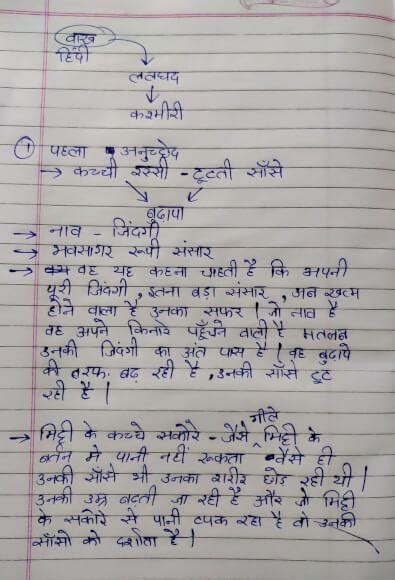 वाख
हिंदी
ललघद
कश्मीरी
① पहला अनुच्छेद
→ कच्ची रस्सी - टूटती साँसे
बुढ़ापा
→ नाव - जिंदगी
→ भवसागर रूपी संसार
→ वह यह कहना चाहती है कि अपनी
पूरी जिंदगी, इतना बड़ा संसार, अब खत्म
होने वाला है उनका सफर। जो नाव है
वह अपने किनारे पहुँचने वाली है मतलब
उनकी जिंदगी का अंत पास है। वह बुढ़ापे
की तरफ बढ़ रही है, उनकी साँसे टूट
रही है।
→ मिट्टी के कच्चे सकोरे - जैसे गीले मिट्टी के
बर्तन में पानी नहीं रूकता वैसे ही
उनकी साँसे भी उनका शरीर छोड़ रही थी।
उनकी उम्र बढ़ती जा रही है और जो मिट्टी
के सकोरे से पानी टपक रहा है वो उनकी
साँसो को दर्शाता है।